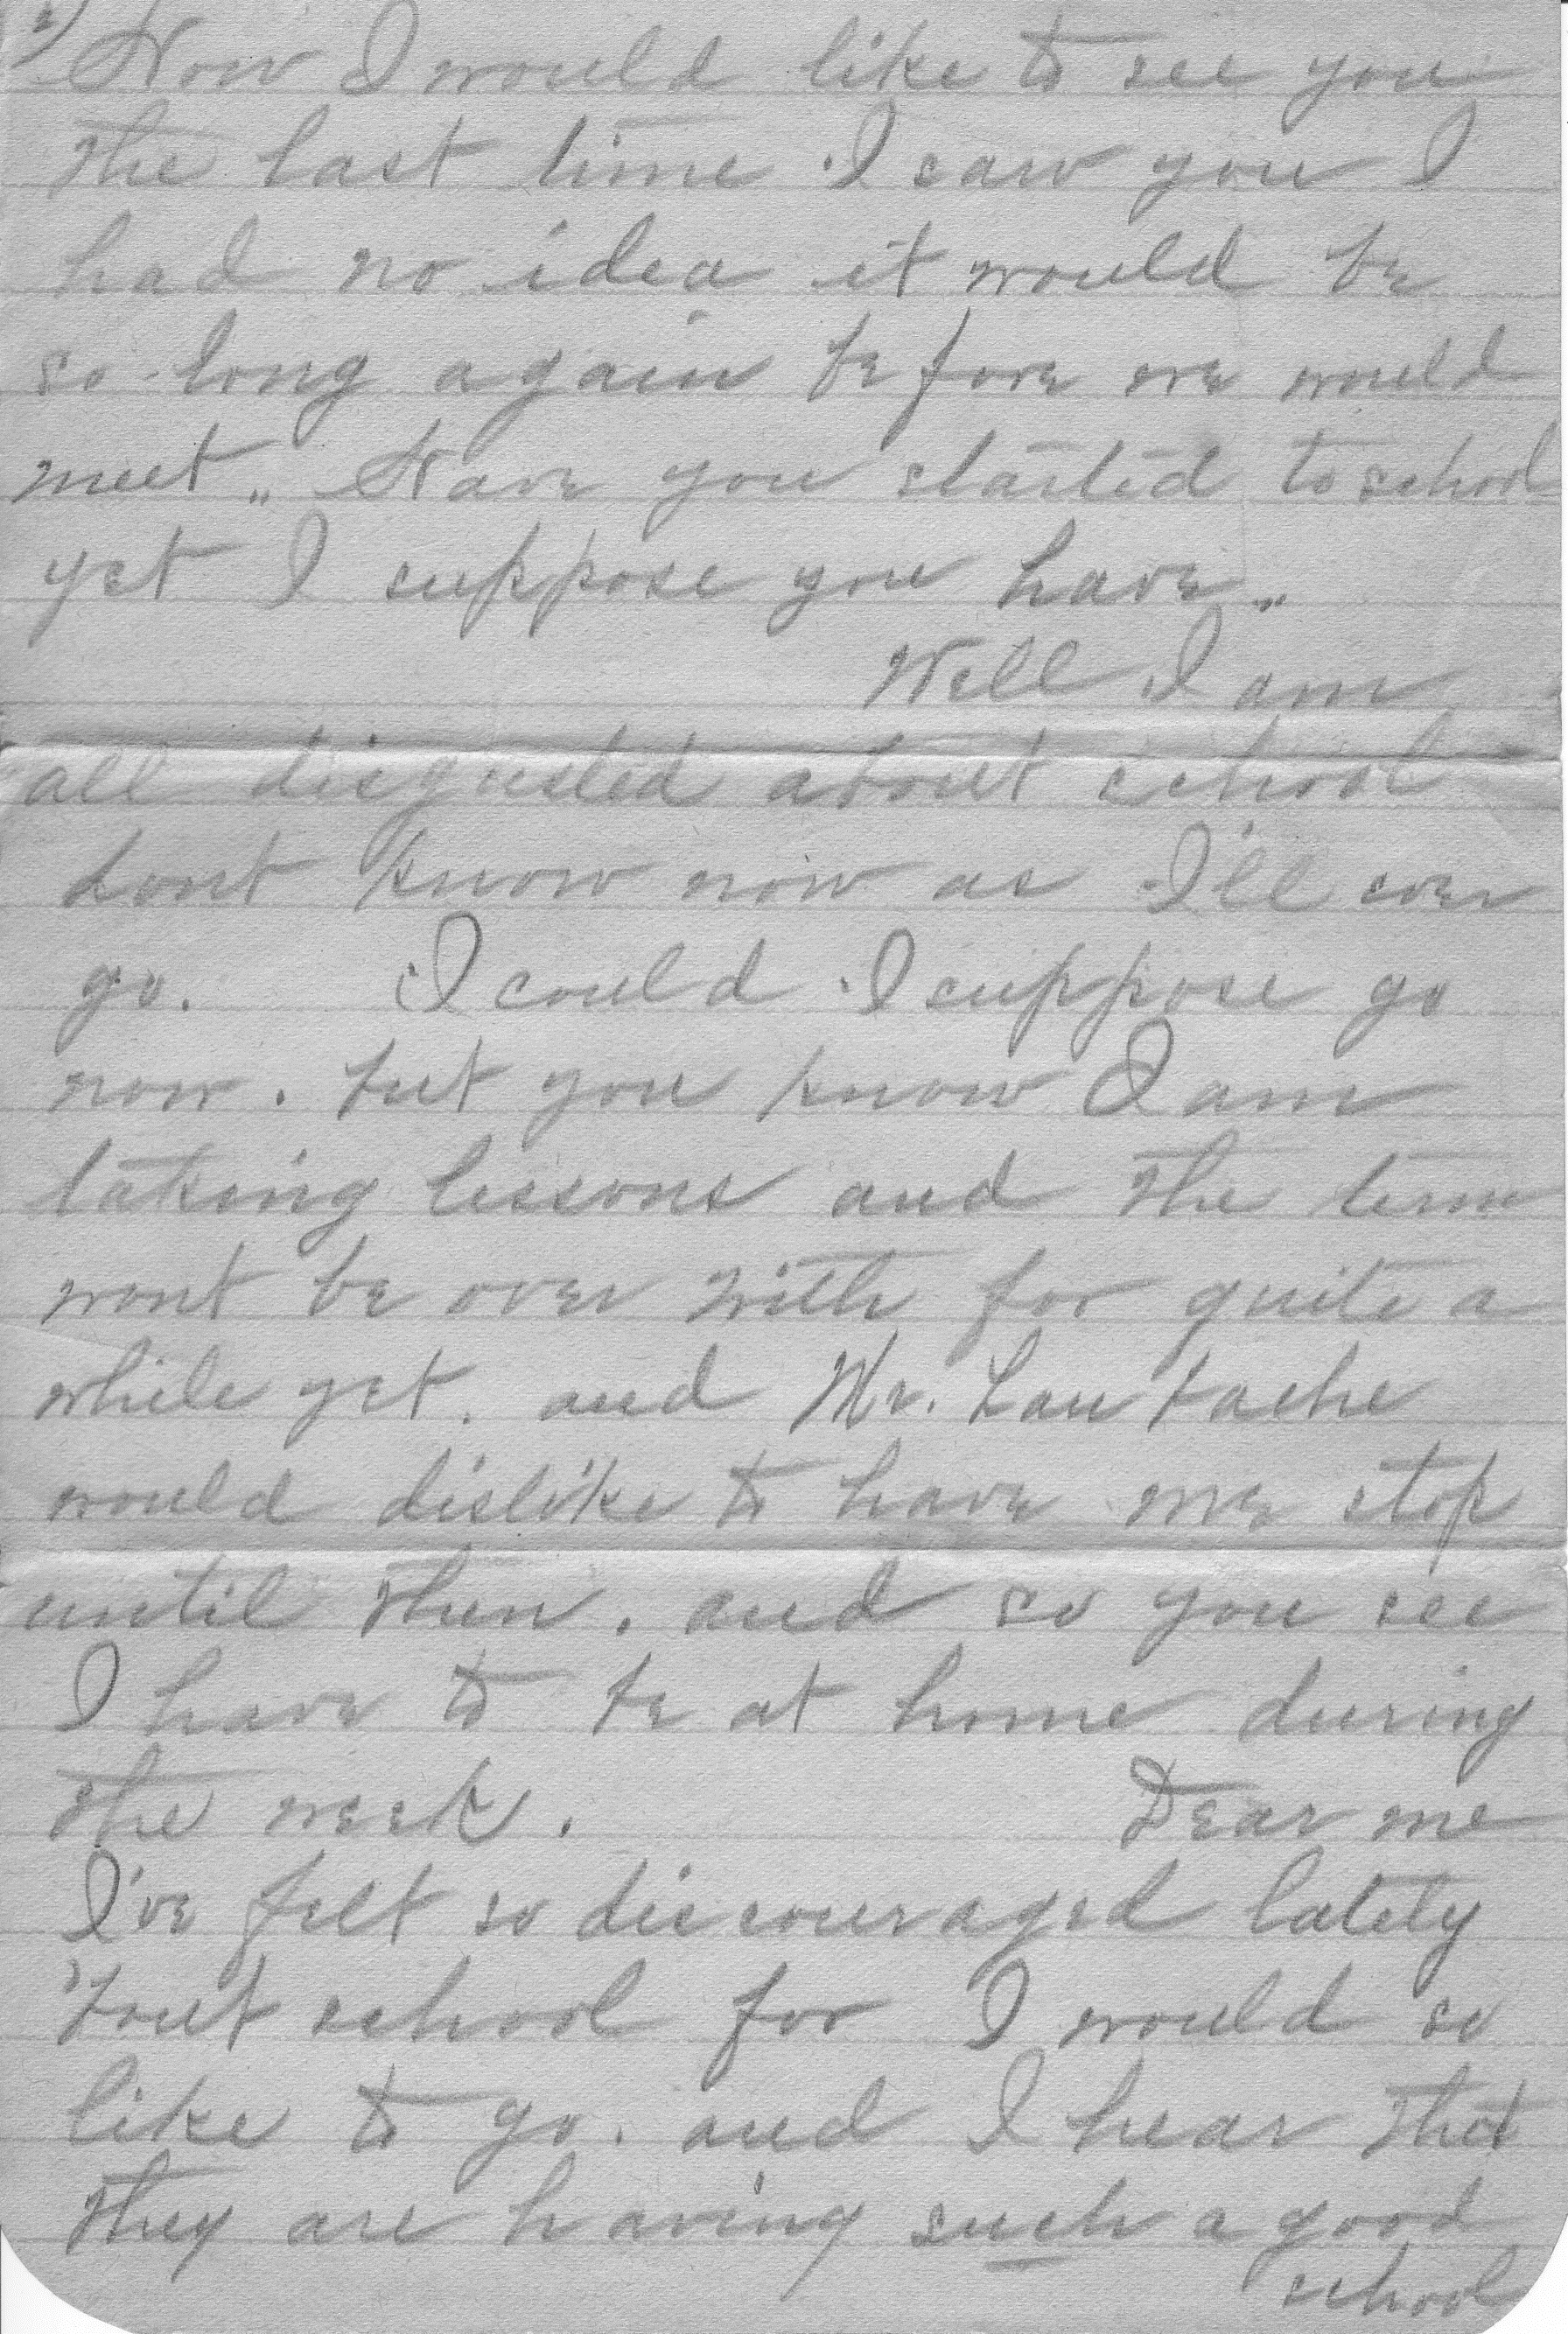 2) How I would like to see you
the last time I saw you I
had no idea it would be
so long again before we would
meet.. Have you started to school
yet I suppose you have..
Well I am
all disgusted about school
dont know now as I'll ever
go. I could I suppose go
now. but you know I am
taking lessons and the term
wont be over with for quite a
while yet. and Mr.
would dislike to have me stop
until then. and so you see
I have to be at home during
the week. Dear me
I've felt so discouraged lately
'bout school for I would so
like to go. and I hear that
they are having such a good
school